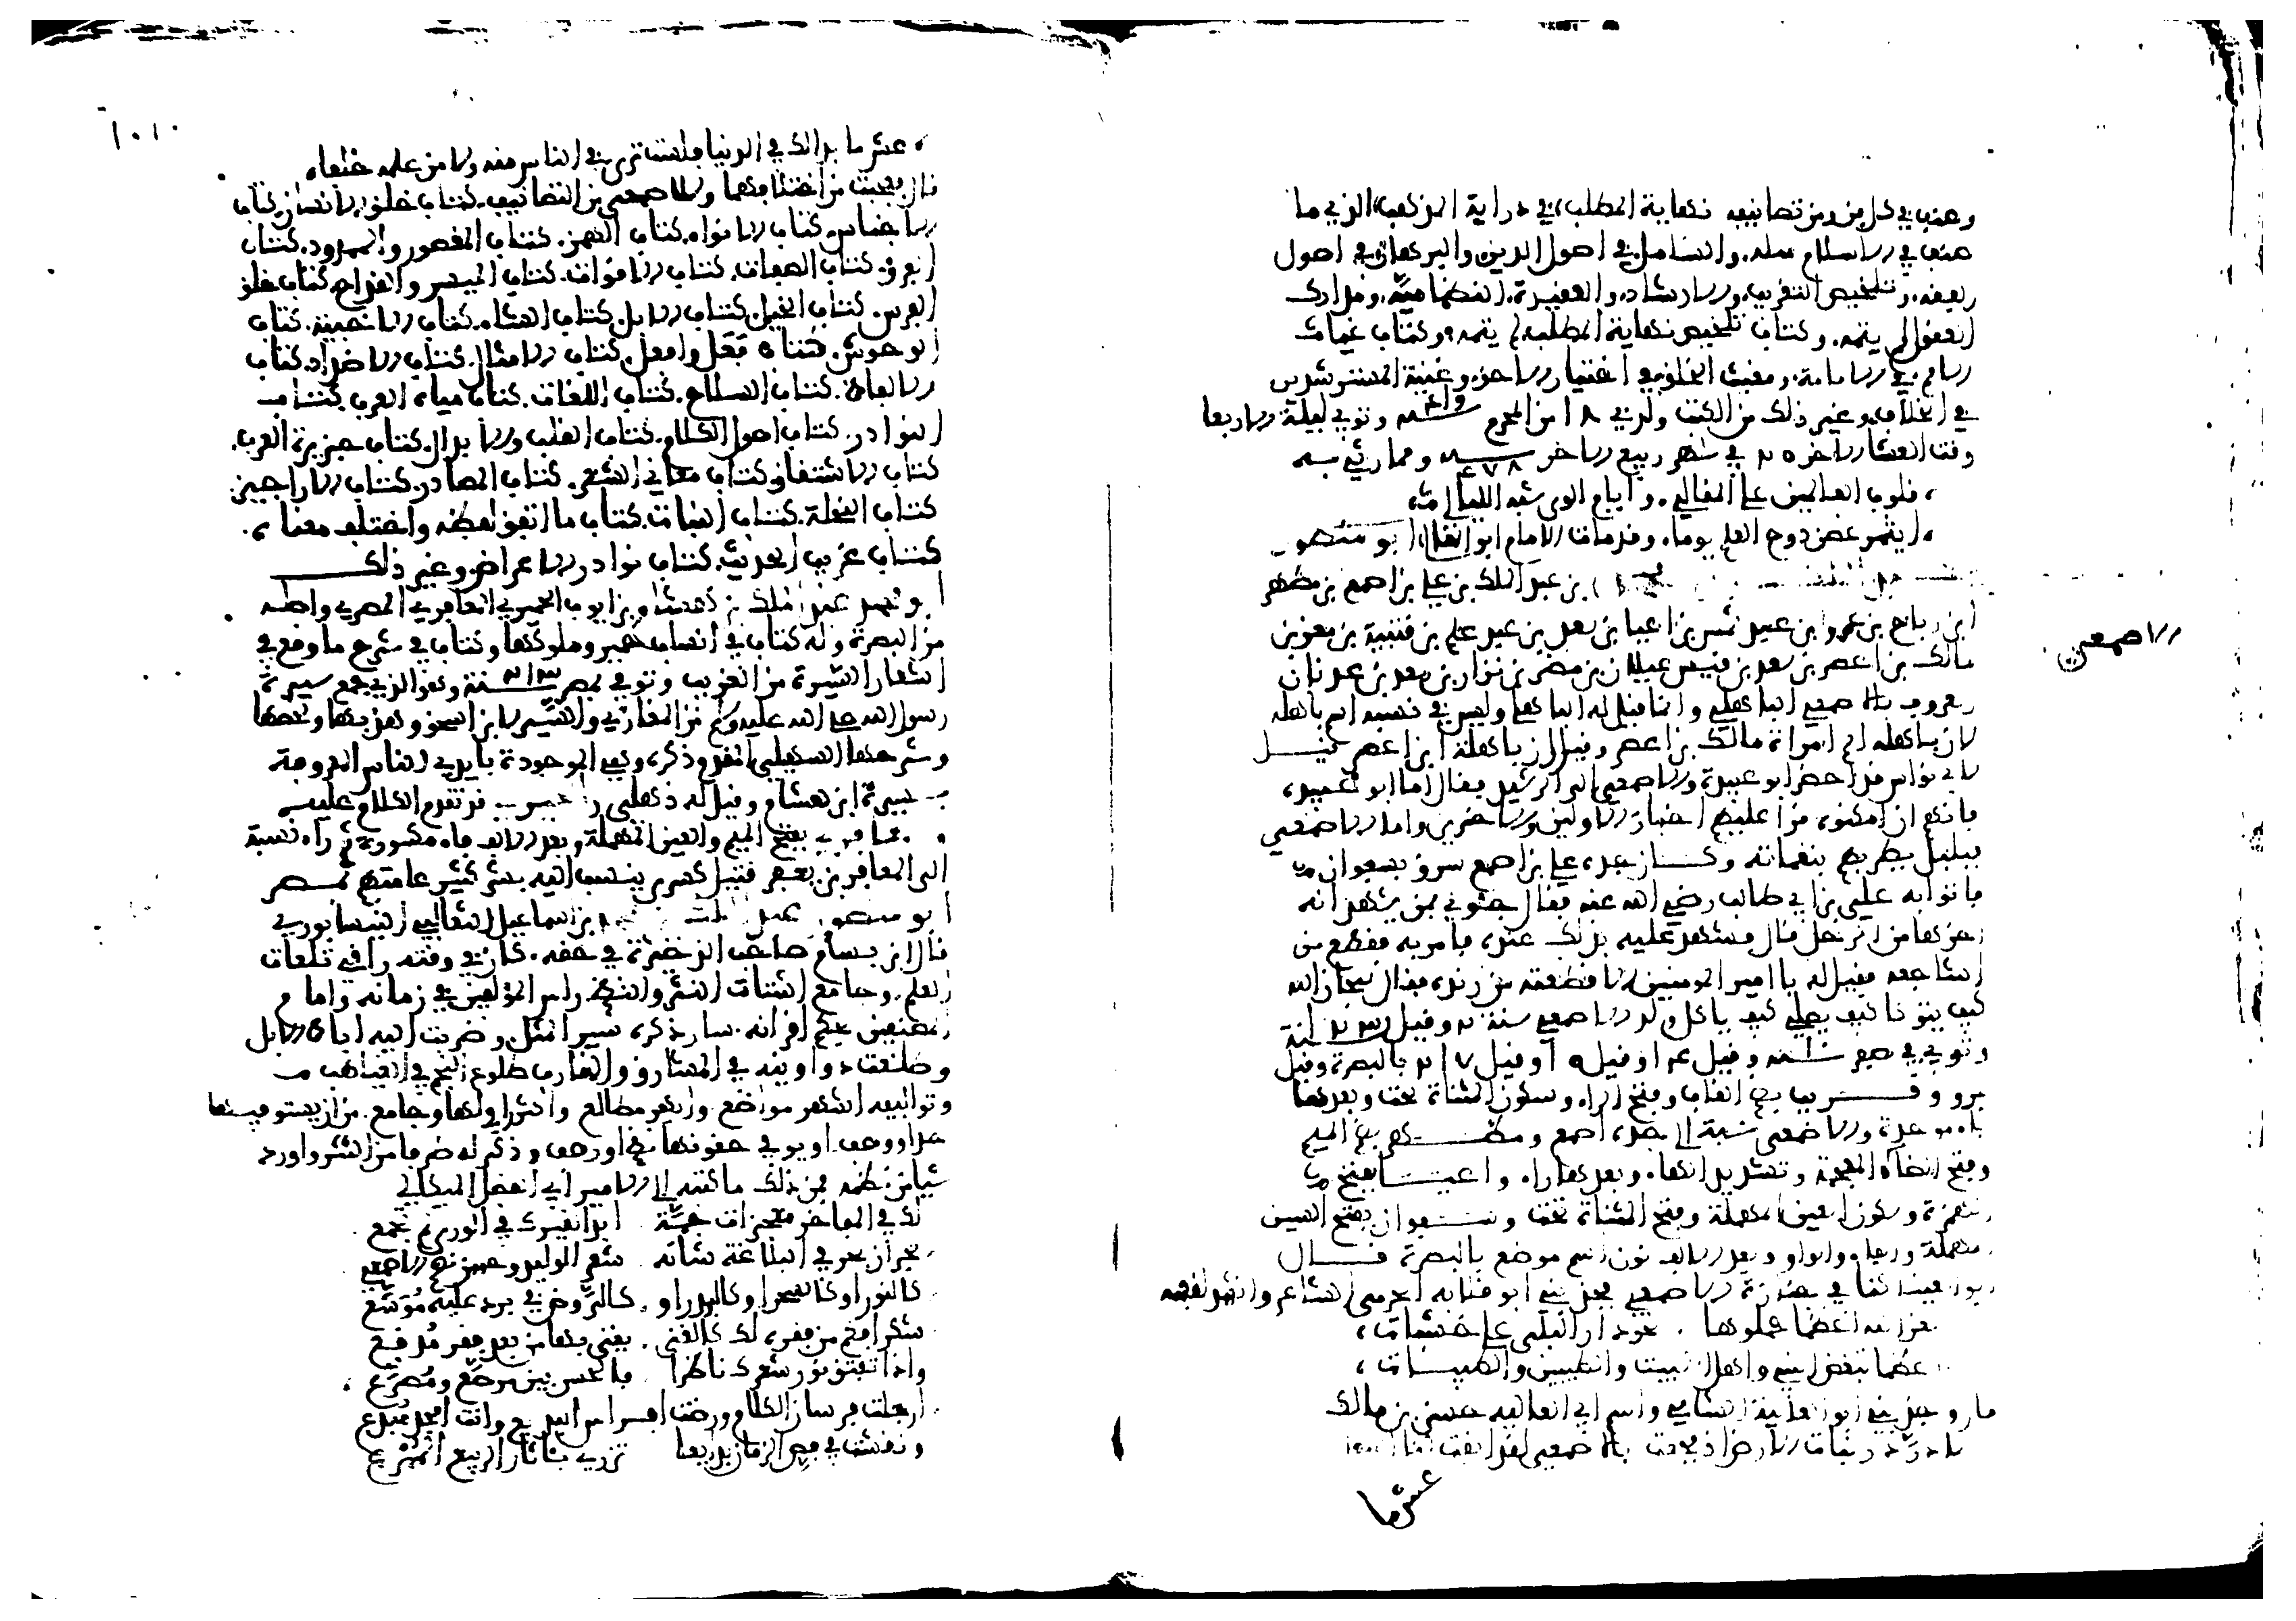 وصنف في كل فن ومن تصانيفه نهاية المطلب في دراية المذهب الذي ما
صنف في الاسلام مثله. والشامل في اصول الدين والبرهان في اصول
الفقه. وتلخيص التقريب. والارشاد. والعقيدة النظامية. ومدارك
العقول لم يتمه. وكتاب تلخيص نهاية المطلب لم يتمه. وكتاب غياث
الامم في الامامة. ومغيث الخلق في اختيار الاحق. وغنية المسترشدين
في الخلاف. وغير ذلك من الكتب ولد في ١٨ من المحرم وتوفي ليلة الاربعا
وقت العشا الاخرة ٢٥ في شهر ربيع الاخر سنة ٤٧٨ ومما رثي به
قلوب العالمين على المقالي. وايام الورى شبه الليالي
ايثمر غصن دوح العلم يوما. وقد مات الامام ابو المعالي
بن عبد الملك بن علي بن اصمع بن مظهر
ابن رباح بن عمرو بن عبد شمس بن اعيا بن سعد بن عبد غنم بن قتيبة بن معن بن
مالك بن اعصر بن سعد بن قيس عيلان بن مضر بن نزار بن معد بن عدنان
المعروف بالاصمعي الباهلي وانما قيل له الباهلي وليس في نسبه اسم باهلة
لان باهلة اسم امراة مالك بن اعصر وقيل ان باهلة ابن اعصر قيل
لابي نواس قد احضر ابو عبيدة والاصمعي الى الرشيد فقال اما ابو عبيدة
فانهم ان امكنوه قرا عليهم اخبار الاولين والاخرين واما الاصمعي
فبلبل يطربهم بنغماته وكان جده علي بن اصمع سرق بسفوان
فاتوا به علي بن ابي طالب رضي الله عنه فقال جئوني بمن يشهد انه
اخرجها من الرحل قال فشهد عليه بذلك عنده فامر به فقطع من
اشاجعه فقيل له يا امير المومنين الا قطعته من زنده فقال سبحان الله
كيف يتوكا كيف يصلي كيف ياكل ولد الاصمعي سنة
وتوفي في صفر وقيل وقيل بالبصرة وقيل
بمرو وقريب بضم القاف وفتح الراء وسكون المثناة تحت وبعدها
باء موحدة والاصمعي نسبة الى جده اصمع ومظهر بضم الميم
وفتح الظاء المعجمة وتشديد الهاء. وبعدها راء. واعيا بفتح
الهمزة وسكون العين المهملة وفتح المثناة تحت وسفوان بفتح السين
المهملة والفاء والواو وبعد الالف نون اسم موضع بالبصرة قال
ابو العينا كنا في جنازة الاصمعي فحدثني ابو قلابة الجرمي الشاعر وانشد لنفسه
لعن الله اعظما حملوها. نحو دار البلى على خشبات
اعظما تبغض النبي واهل البيت والطيبين والطيبات
وحدثني ابو العالية الشامي واسم ابي العالية حسن بن مالك
لا در در نبات الارض اذ فجعت بالاصمعي لقد ابقت لنا اسفا
عش ما
الاصمعي
عش ما بدا لك في الدنيا فلست ترى في الناس منه ولا من علمه خلفا
قال فعجبت من اختلافهما وللاصمعي من التصانيف. كتاب خلق الانسان. كتاب
الاجناس. كتاب الانواء. كتاب الهمز. كتاب المقصور والممدود. كتاب
الفرق. كتاب الصفات. كتاب الاثواب. كتاب الميسر والقداح. كتاب خلق
الفرس. كتاب الخيل. كتاب الابل. كتاب الشاء. كتاب الاخبية. كتاب
الوحوش. كتاب فعل وافعل. كتاب الامثال. كتاب الاضداد. كتاب
الالفاظ. كتاب السلاح. كتاب اللغات. كتاب مياه العرب. كتاب
النوادر. كتاب اصول الكلام. كتاب القلب والابدال. كتاب جزيرة العرب.
كتاب الاشتقاق. كتاب معاني الشعر. كتاب المصادر. كتاب الاراجيز
كتاب النخلة. كتاب النبات. كتاب ما اتفق لفظه واختلف معناه.
كتاب غريب الحديث. كتاب نوادر الاعراض. وغير ذلك
ابو محمد عبد الملك بن هشام بن ايوب الحميري المعافري المصري واصله
من البصرة وله كتاب في انساب حمير وملوكها وكتاب في شرح ما وقع في
اشعار السيرة من الغريب وتوفي بمصر سنة ٢١٣ وهو الذي جمع سيرة
رسول الله صلى الله عليه وسلم من المغازي والسير لابن اسحق وهذبها ولخصها
وشرحها السهيلي المقدم ذكره وهي الموجودة بايدي الناس المعروفة
بسيرة ابن هشام وقيل له ذهلي قد تقدم الكلام عليه
والمعافري بفتح الميم والعين المهملة وبعد الالف فاء مكسورة ثم راء نسبة
الى المعافر بن يعفر قبيل كبير ينسب اليه بشر كثير عامتهم بمصر
ابو منصور عبد الملك بن محمد بن اسماعيل الثعالبي النيسابوري
قال ابن بسام صاحب الذخيرة في حقه. كان في وقته راعي تلعات
العلم. وجامع اشتات النثر والنظم راس المؤلفين في زمانه وامام
المصنفين بحكم اقرانه. سار ذكره سير المثل. وضربت اليه اباط الابل
وطلعت دواوينه في المشارق والمغارب طلوع النجم في الغياهب
وتواليفه اشهر مواضع وابهر مطالع واكثر راو لها وجامع. من ان يستوفيها
حد او وصف او يوفي حقوقها نظم او رصف وذكر له طرفا من النثر واورد
شيا من نظمه فمن ذلك ما كتبه الى الامير ابي الفضل الميكالي
لك في المفاخر معجزات جمة ابدا لغيرك في الورى لم تجمع
بحران بحر في البلاغة شابه شعر الوليد وحسن نظم الاصمعي
كالنور او كالسحر او كالبدر او كالروض في برد عليه موشع
شكرا فكم من فقرة لك كالغنى. يغنى بها من بعد فقر مدقع
واذا تفتق نور شعرك ناظرا فالحسن بين مرصع ومصرع
ارجلت فرسان الكلام ورضت افراس البديع وانت امجد مبدع
ونقشت في فص الزمان بدايعا تزري باثار الربيع الممرع